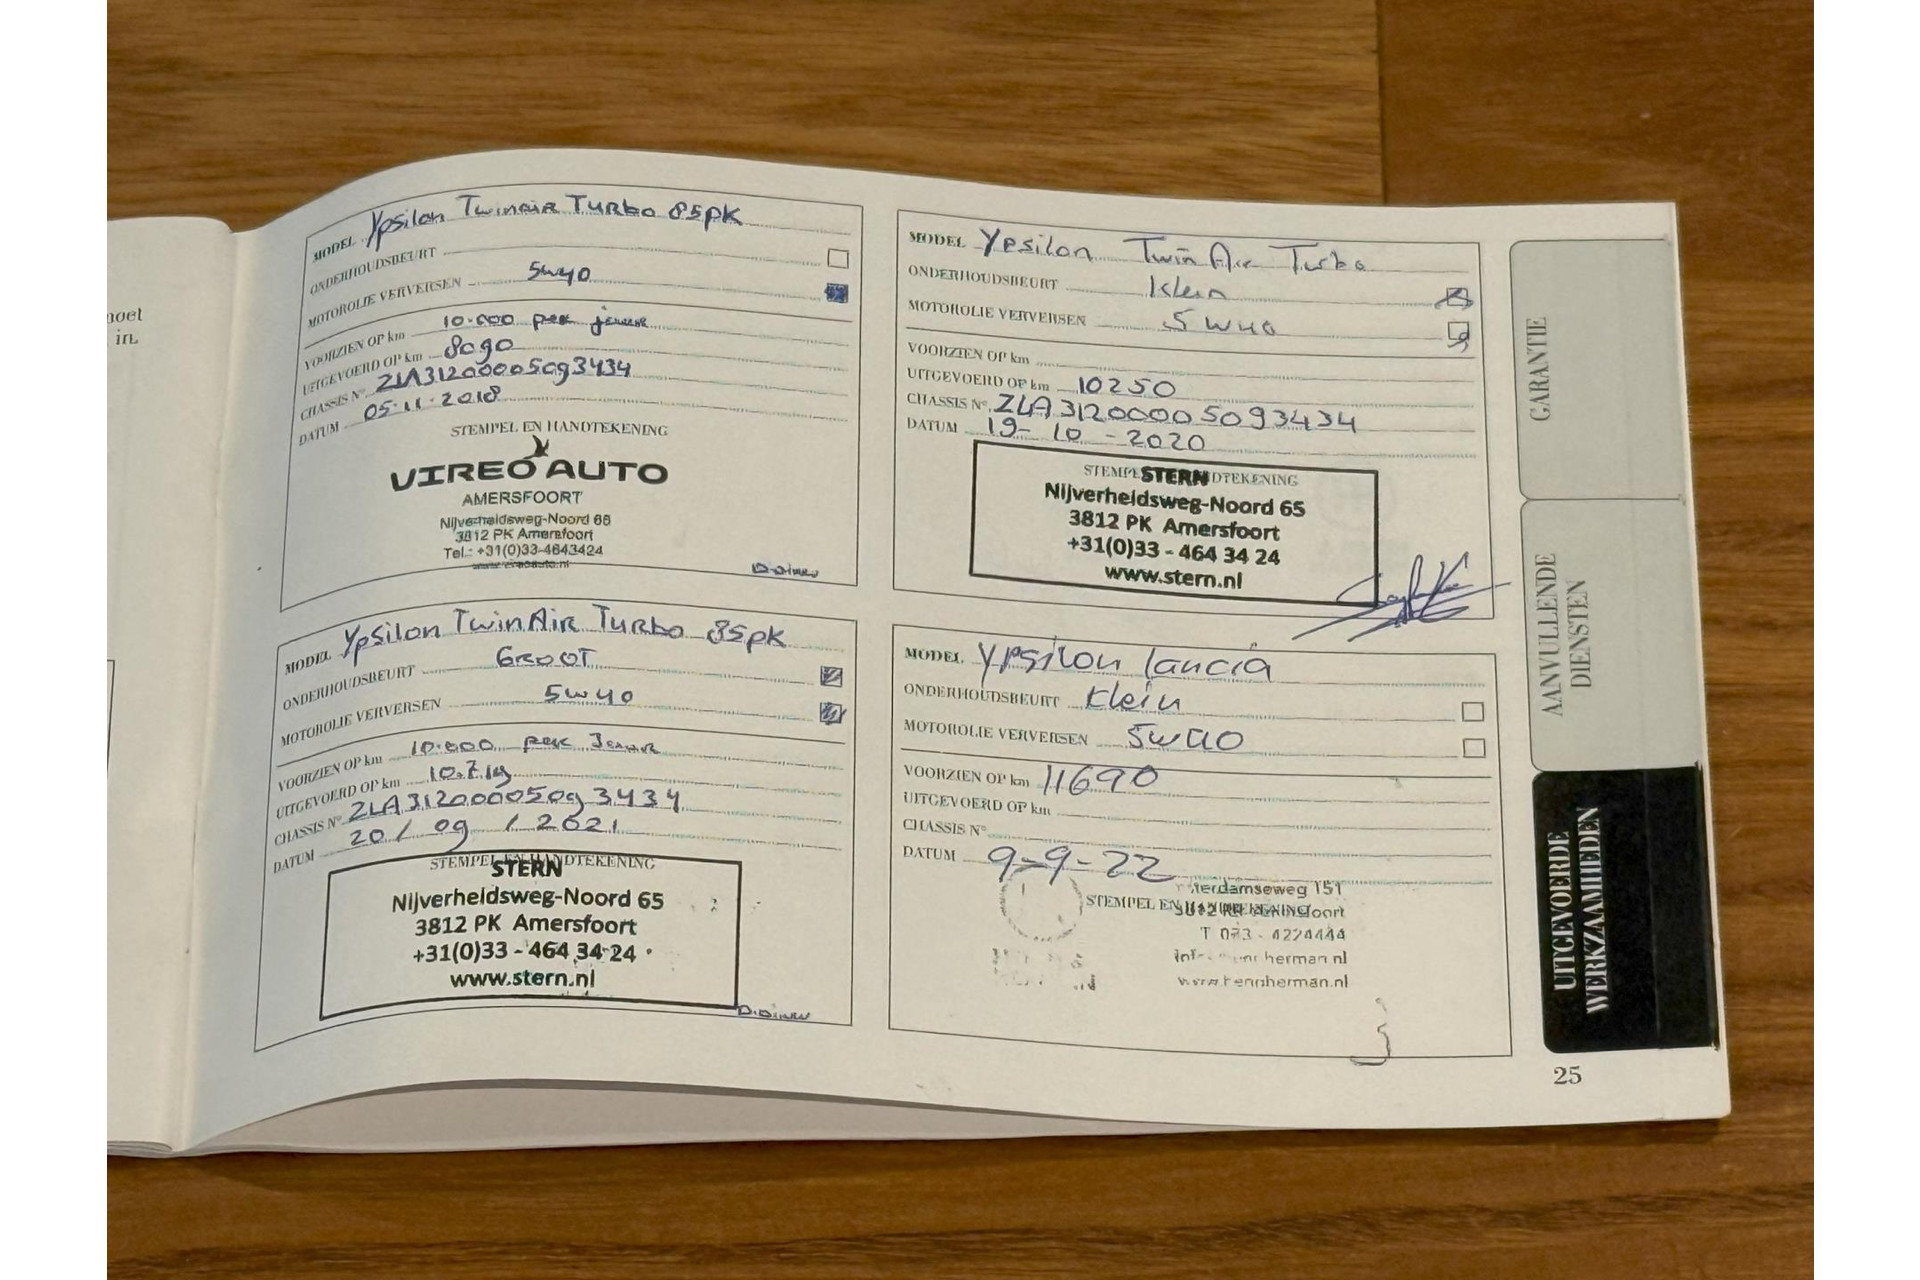 noet
in.
MODEL Ypsilon Twinair Turbo 85pk
ONDERHOUDSBEURT
MOTOROLIE VERVERSEN 5w40
VOORZIEN OP km 10.000 per jaar
UITGEVOERD OP km 8090
CHASSIS Nº ZLA31200005093434
DATUM 05-11-2018
STEMPEL EN HANDTEKENING
VIREO AUTO
AMERSFOORT
Nijverheidsweg-Noord 65
3812 PK Amersfoort
Tel.: +31(0)33-4643424
www.vireoauto.nl
MODEL Ypsilon TwinAir Turbo
ONDERHOUDSBEURT Klein
MOTOROLIE VERVERSEN 5W40
VOORZIEN OP km
UITGEVOERD OP km 10250
CHASSIS Nº ZLA31200005093434
DATUM 19-10-2020
STEMPEL EN HANDTEKENING
STERN
Nijverheidsweg-Noord 65
3812 PK Amersfoort
+31(0)33 - 464 34 24
www.stern.nl
MODEL Ypsilon TwinAir Turbo 85pk
ONDERHOUDSBEURT GROOT
MOTOROLIE VERVERSEN 5w40
VOORZIEN OP km 10.000 per Jaar
UITGEVOERD OP km
CHASSIS Nº ZLA31200005093434
DATUM 20/09/2021
STEMPEL EN HANDTEKENING
STERN
Nijverheidsweg-Noord 65
3812 PK Amersfoort
+31(0)33 - 464 34 24
www.stern.nl
MODEL Ypsilon lancia
ONDERHOUDSBEURT Klein
MOTOROLIE VERVERSEN 5w40
VOORZIEN OP km 11690
UITGEVOERD OP km
CHASSIS Nº
DATUM 9-9-22
STEMPEL EN HANDTEKENING
terdamseweg 151
T 033 - 4224444
herman.nl
GARANTIE
AANVULLENDE
DIENSTEN
UITGEVOERDE
WERKZAAMHEDEN
25